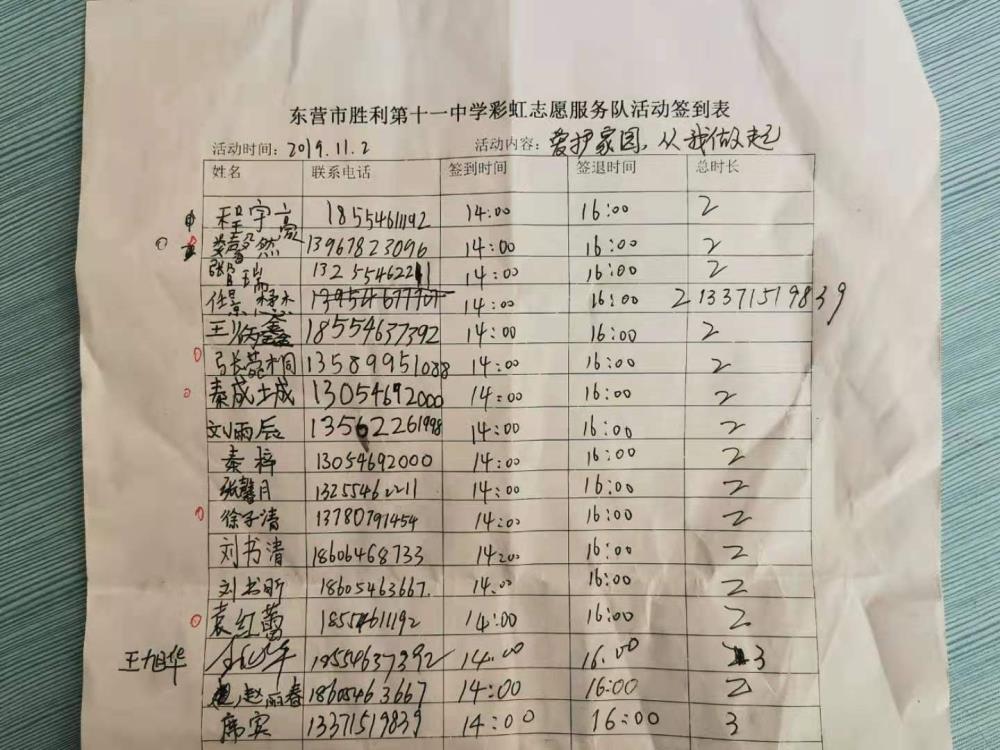 东营市胜利第十一中学彩虹志愿服务队活动签到表
活动时间：2019.11.2 活动内容：爱护家园，从我做起
姓名 联系电话 签到时间 签退时间 总时长
程宇 18554611192 14:00 16:00 2
然 13967823096 14:00 16:00 2
张智瑞 13255462211 14:00 16:00 2
任景 14:00 16:00 2 13371519839
王炳鑫 18554637392 14:00 16:00 2
张蕊桐 13589951088 14:00 16:00 2
秦成城 13054692000 14:00 16:00 2
刘雨辰 13562261998 14:00 16:00 2
秦梓 13054692000 14:00 16:00 2
张馨月 13255462211 14:00 16:00 2
徐子清 13780791454 14:00 16:00 2
刘书清 18606468733 14:00 16:00 2
刘书昕 18605463667. 14:00 16:00 2
袁红蕾 18554611192 14:00 16:00 2
王旭华 18554637392 14:00 16:00 3
赵丽春 18605463667 14:00 16:00 2
席实 13371519839 14:00 16:00 3